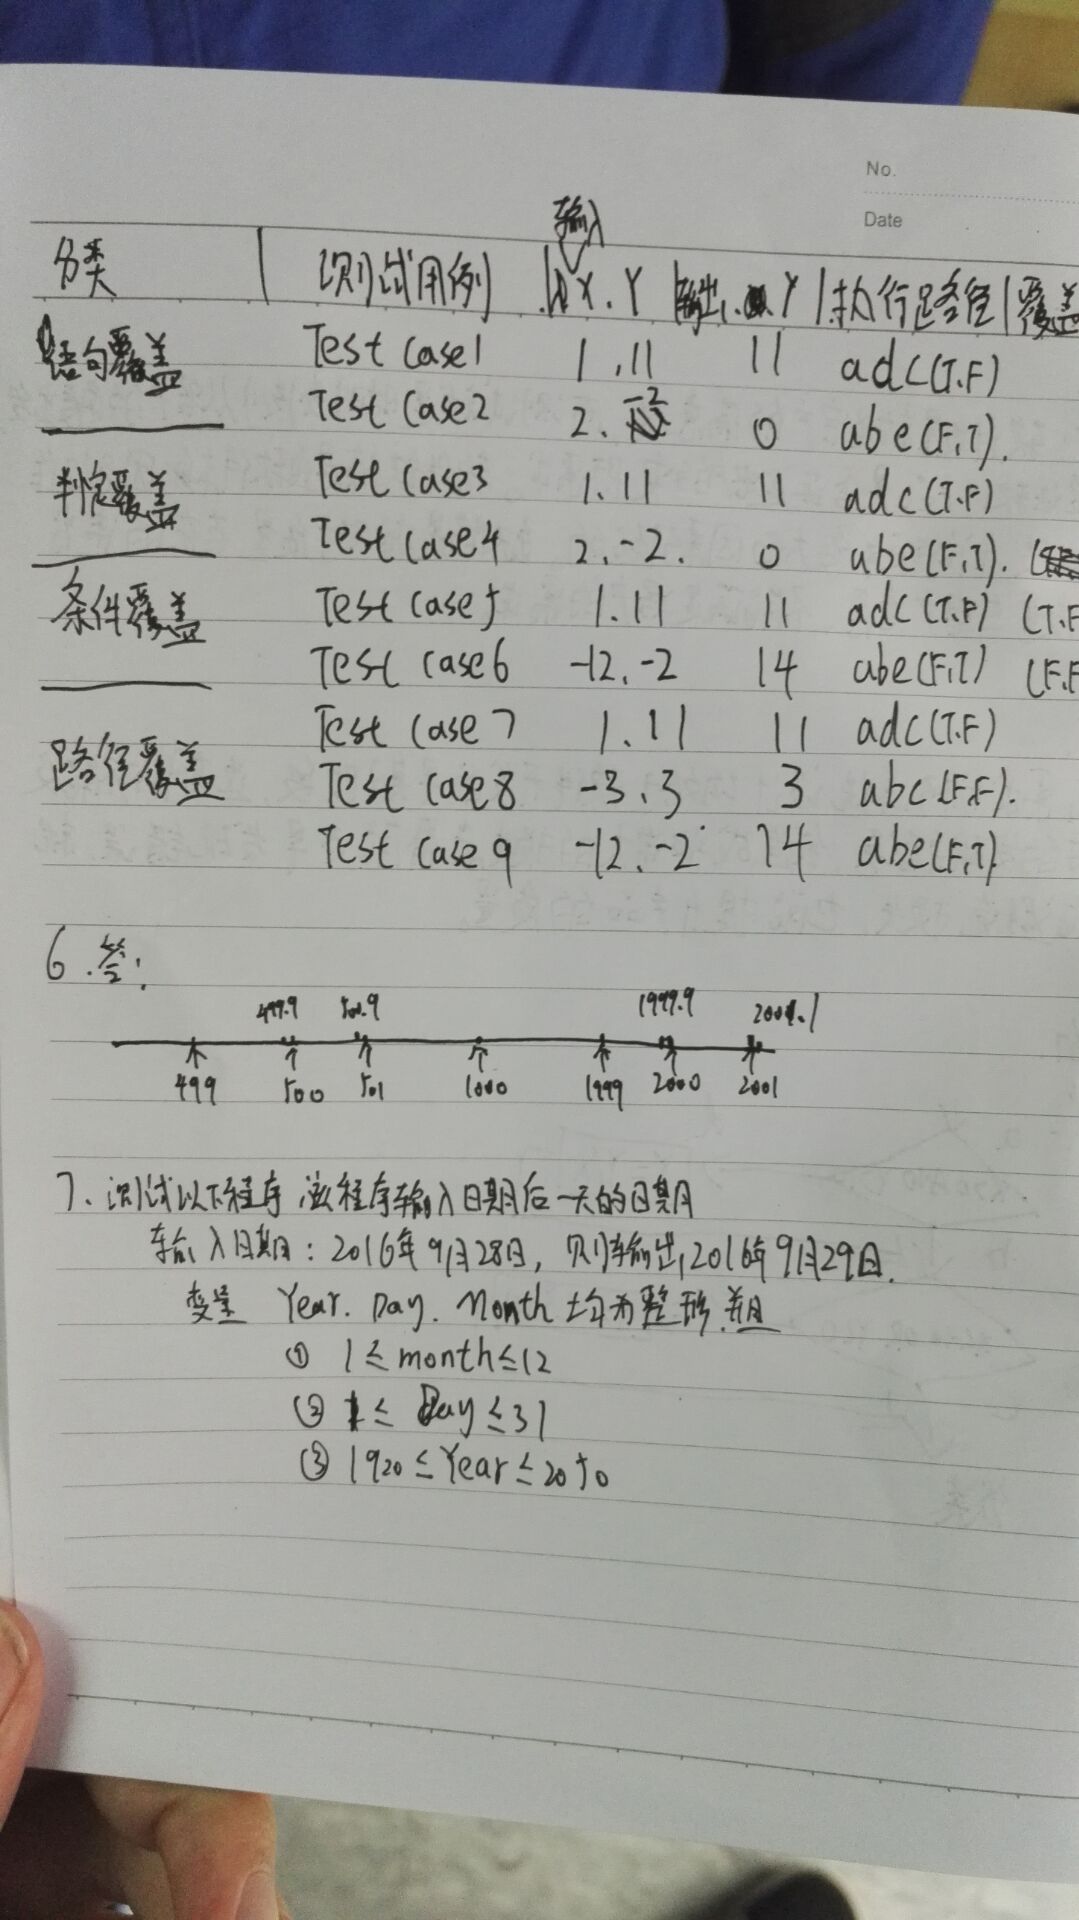 No.
Date
输入
分类 | 测试用例 | X.Y | 输出 Y | 执行路径 | 覆盖
语句覆盖 Test case1 1.11 11 adc(T.F)
Test case2 2.-2 0 abe(F,T).
判定覆盖 Test case3 1.11 11 adc(T.F)
Test case4 2.-2. 0 abe(F,T).
条件覆盖 Test case5 1.11 11 adc(T.F) (T.F
Test case6 -12.-2 14 abe(F,T) (F.F
Test case7 1.11 11 adc(T.F)
路径覆盖 Test case8 -3.3 3 abc(F.F).
Test case9 -12.-2 14 abe(F,T)
6.答:
499.9 500.9 1999.9 2001.1
499 500 501 1000 1999 2000 2001
7、测试以下程序,该程序输入日期后一天的日期
输入日期:2016年9月28日,则输出2016年9月29日.
变量 Year. Day. Month 均为整形,并且
① 1≤month≤12
② 1≤Day≤31
③ 1920≤Year≤2050